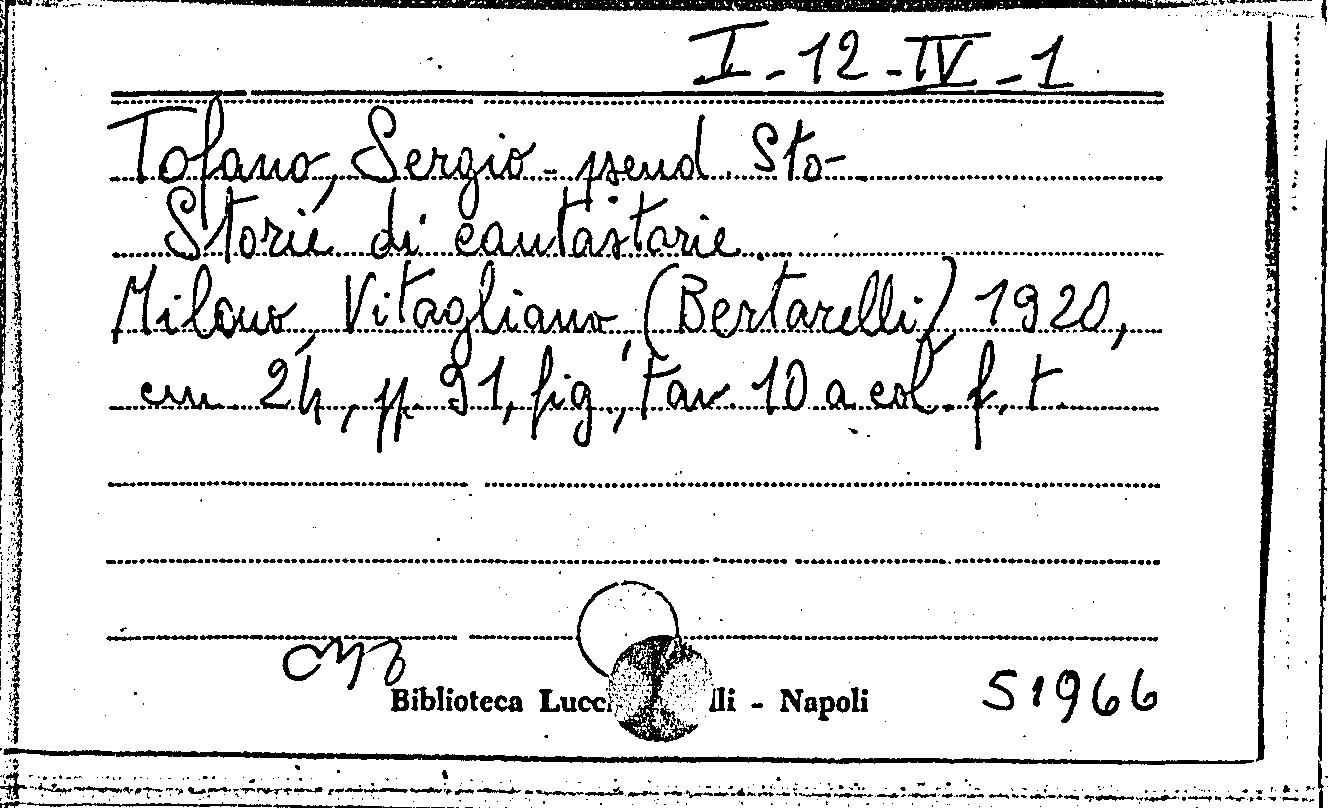 I-12-IV-1
Tofano, Sergio - pseud. Sto-
Storie di cantastorie.
Milano, Vitagliano, (Bertarelli), 1920,
cm. 24, pp. 91, fig., tav. 10 a col. f. t.
Biblioteca Lucc lli - Napoli
51966